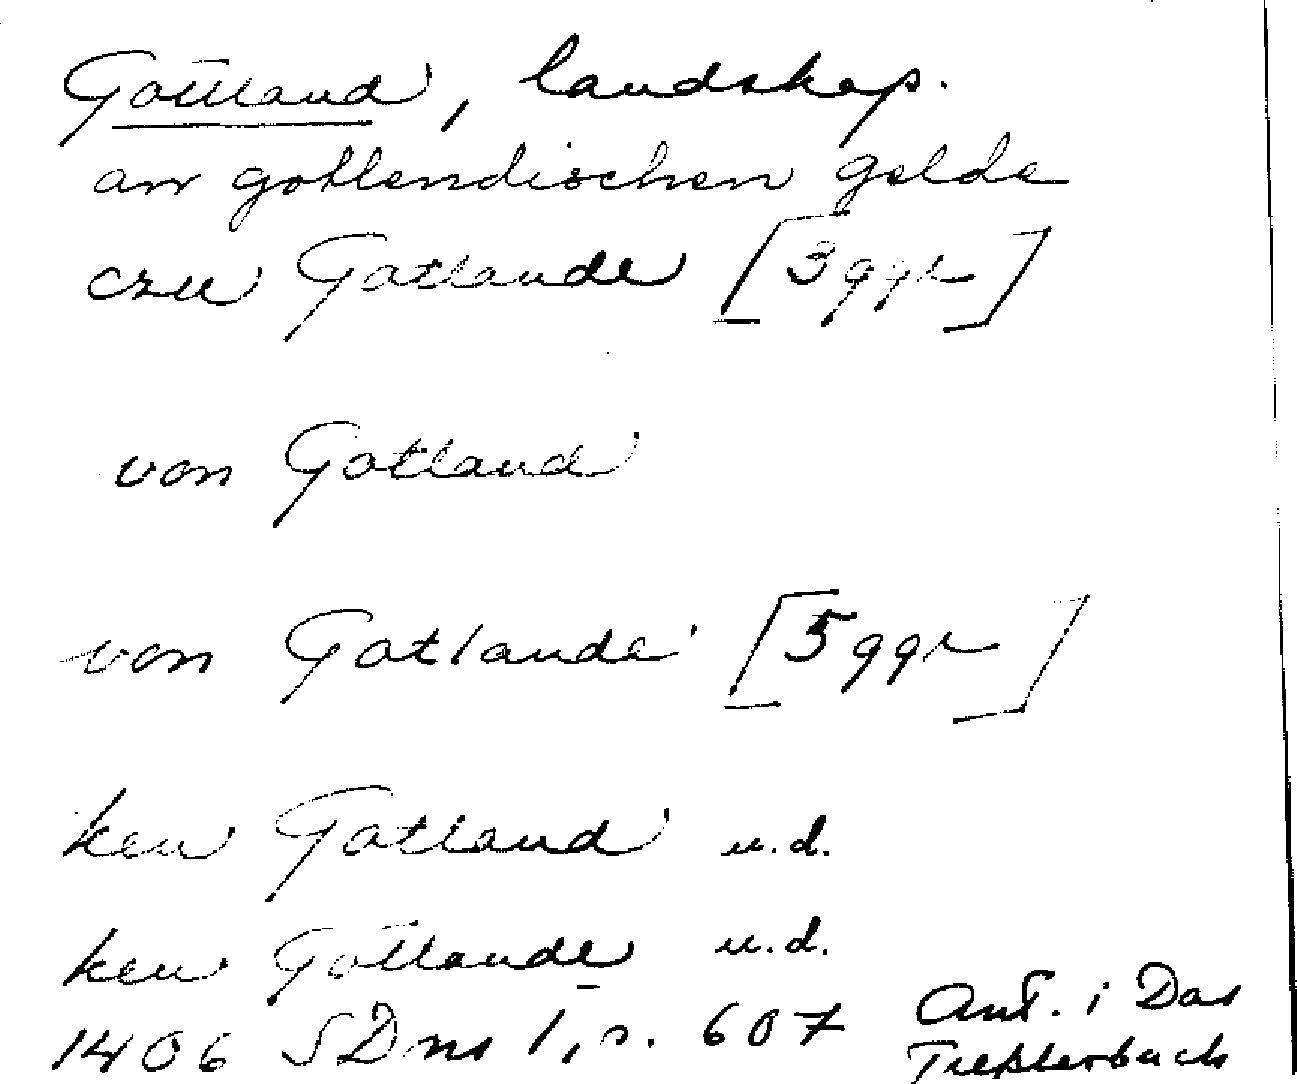 Gottland, landskap.
an gotlendischen gelde
czu Gotlande [3 ggr]
von Gotland
von Gotlande [5 ggr]
ken Gotland u.d.
ken Gotlande u.d.
1406 SDns 1, s. 607 Ant. i Das
Treßlerbuch